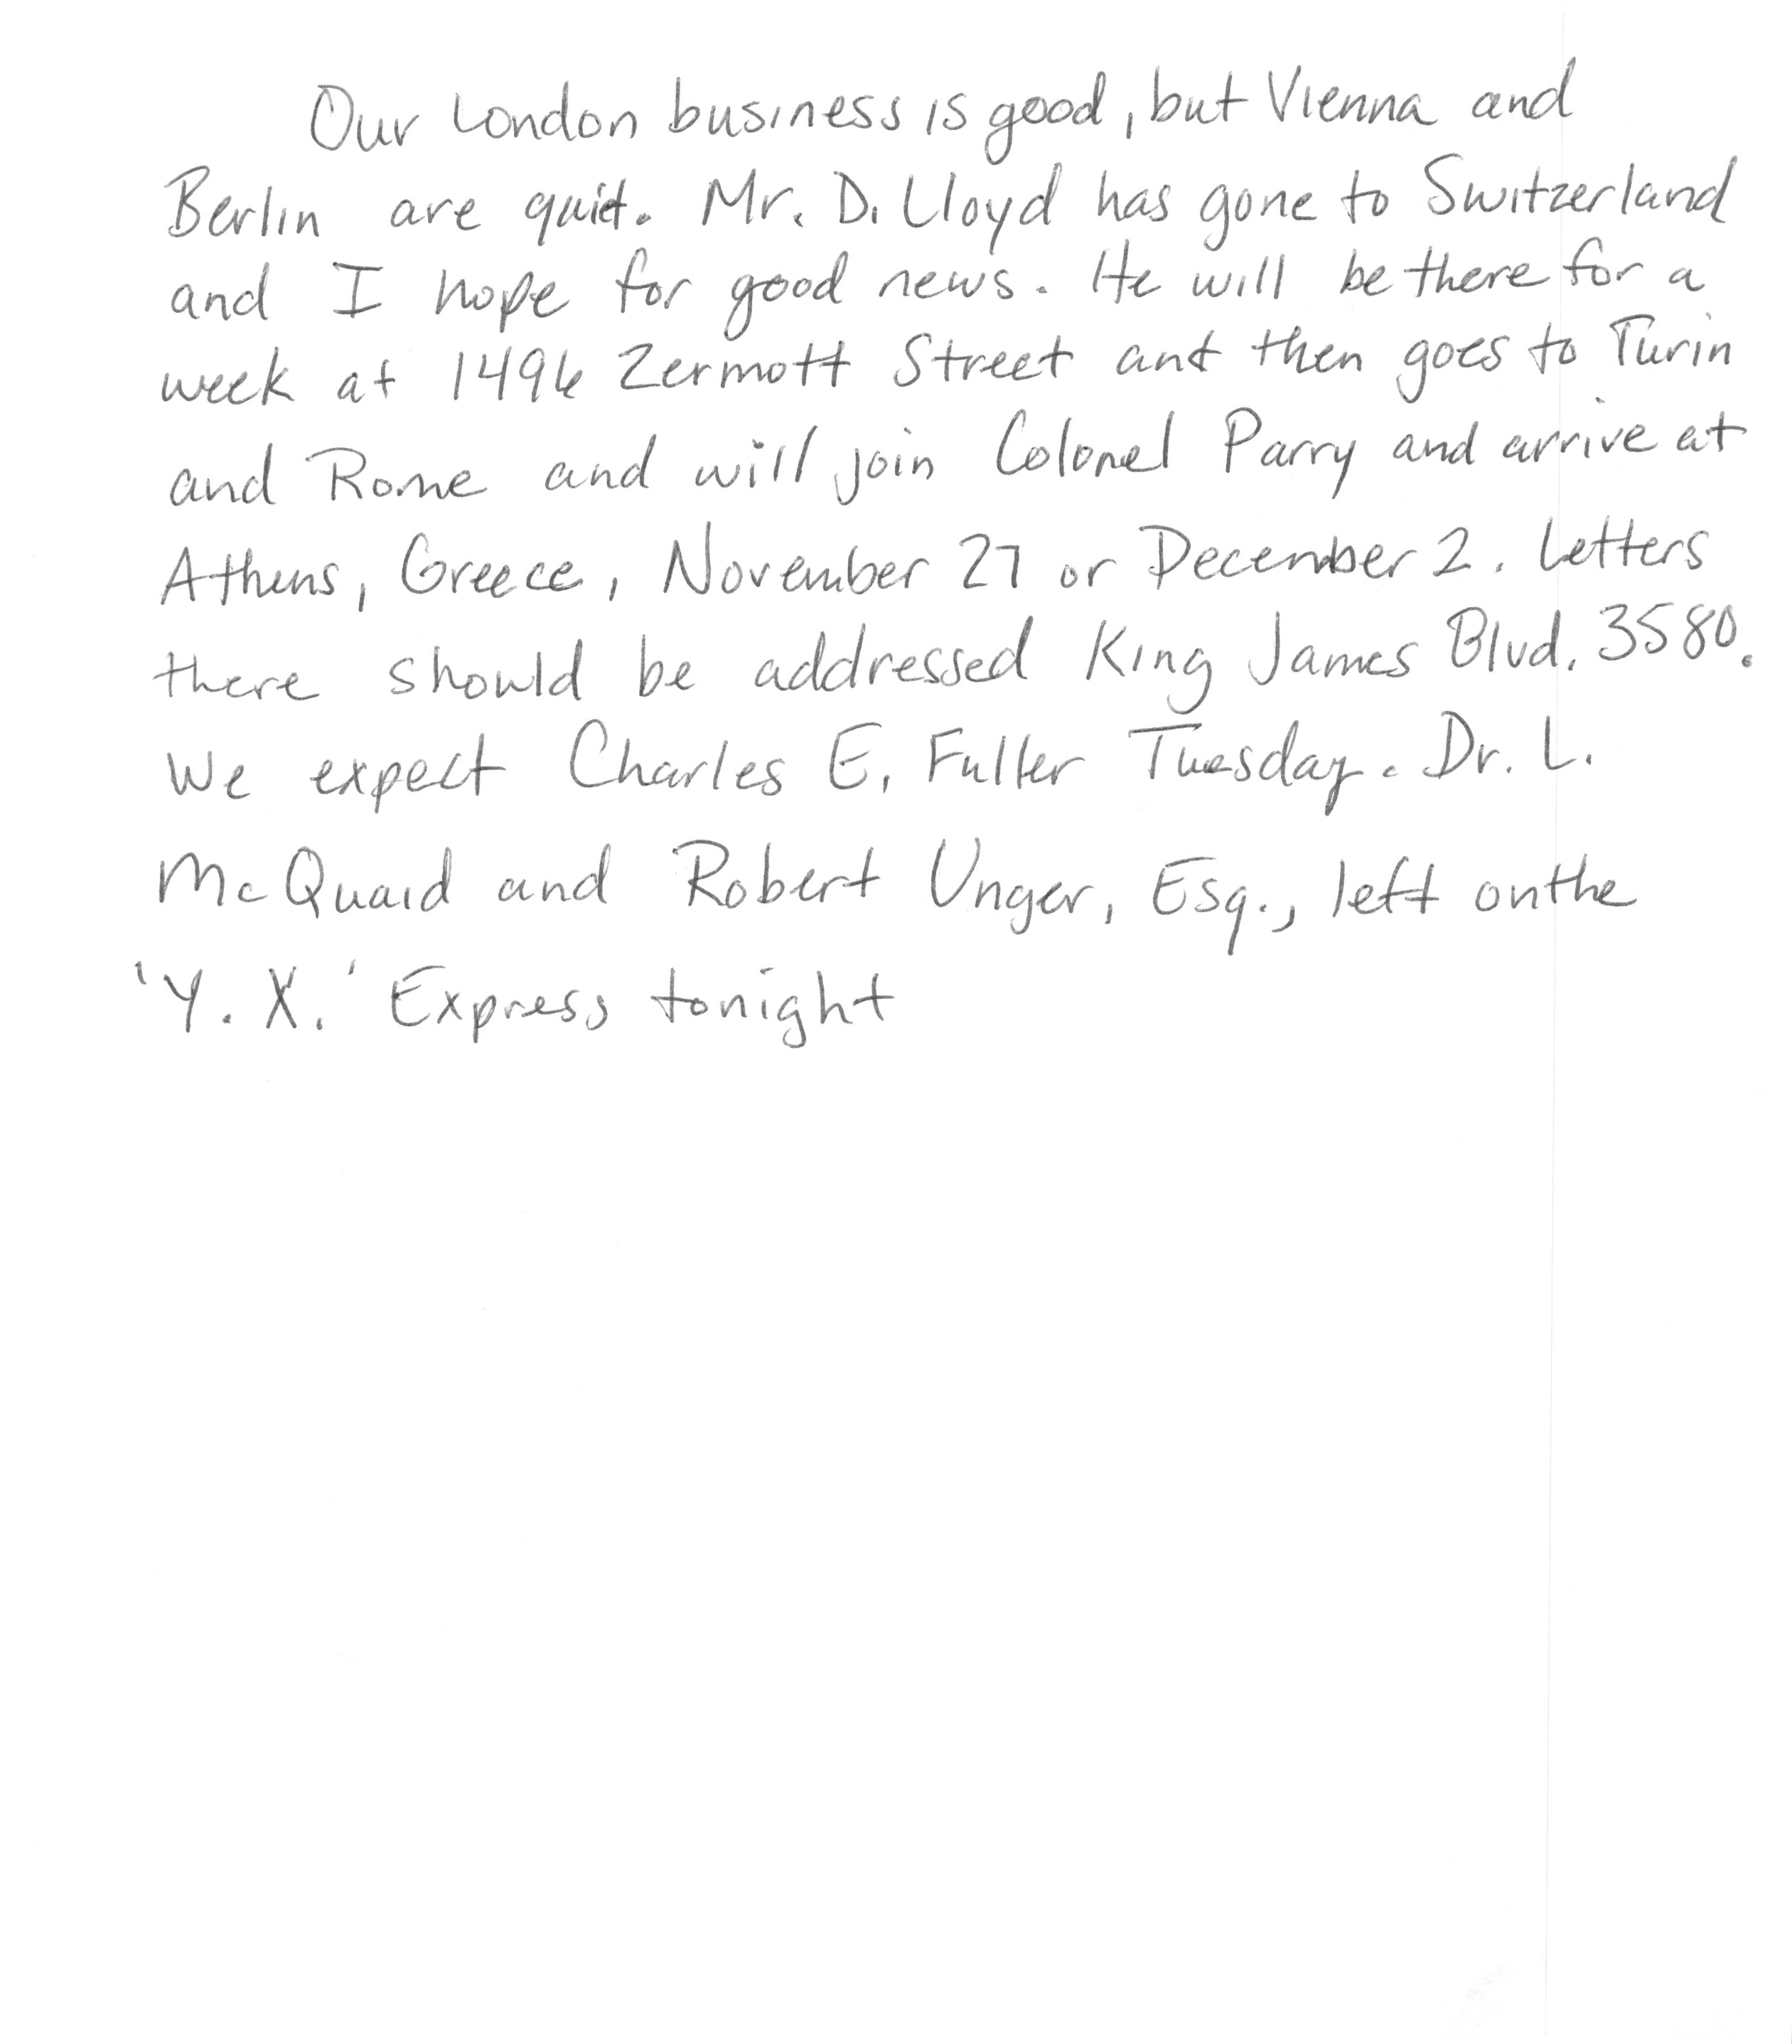 Our London business is good, but Vienna and
Berlin are quiet. Mr. D. Lloyd has gone to Switzerland
and I hope for good news. He will be there for a
week at 1496 Zermott Street and then goes to Turin
and Rome and will join Colonel Parry and arrive at
Athens, Greece, November 27 or December 2. Letters
there should be addressed King James Blvd. 3580.
We expect Charles E. Fuller Tuesday. Dr. L.
McQuaid and Robert Unger, Esq., left on the
'Y. X.' Express tonight